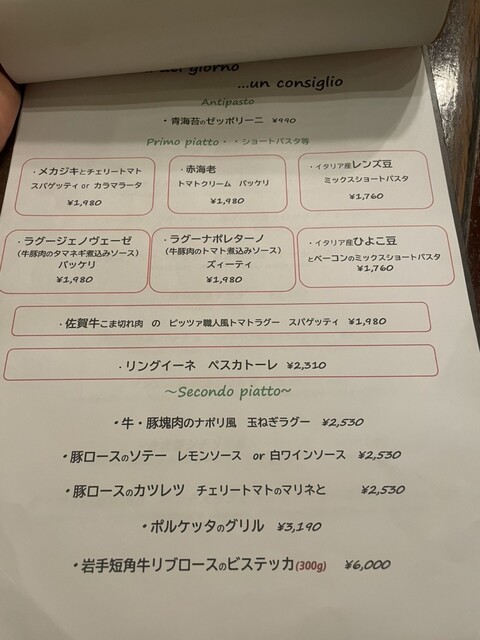 del giorno
...un consiglio
Antipasto
・青海苔のゼッポリーニ ¥990
Primo piatto・・ショートパスタ等
・メカジキとチェリートマト
スパゲッティ or カラマラータ
¥1,980
・赤海老
トマトクリーム パッケリ
¥1,980
・イタリア産レンズ豆
ミックスショートパスタ
¥1,760
・ラグージェノヴェーゼ
(牛豚肉のタマネギ煮込みソース)
パッケリ
¥1,980
・ラグーナポレターノ
(牛豚肉のトマト煮込みソース)
ズィーティ
¥1,980
・イタリア産ひよこ豆
とベーコンのミックスショートパスタ
¥1,760
・佐賀牛こま切れ肉 の ピッツァ職人風トマトラグー スパゲッティ ¥1,980
・リングイーネ ペスカトーレ ¥2,310
～Secondo piatto～
・牛・豚塊肉のナポリ風 玉ねぎラグー ¥2,530
・豚ロースのソテー レモンソース or 白ワインソース ¥2,530
・豚ロースのカツレツ チェリートマトのマリネと ¥2,530
・ポルケッタのグリル ¥3,190
・岩手短角牛リブロースのビステッカ(300g) ¥6,000